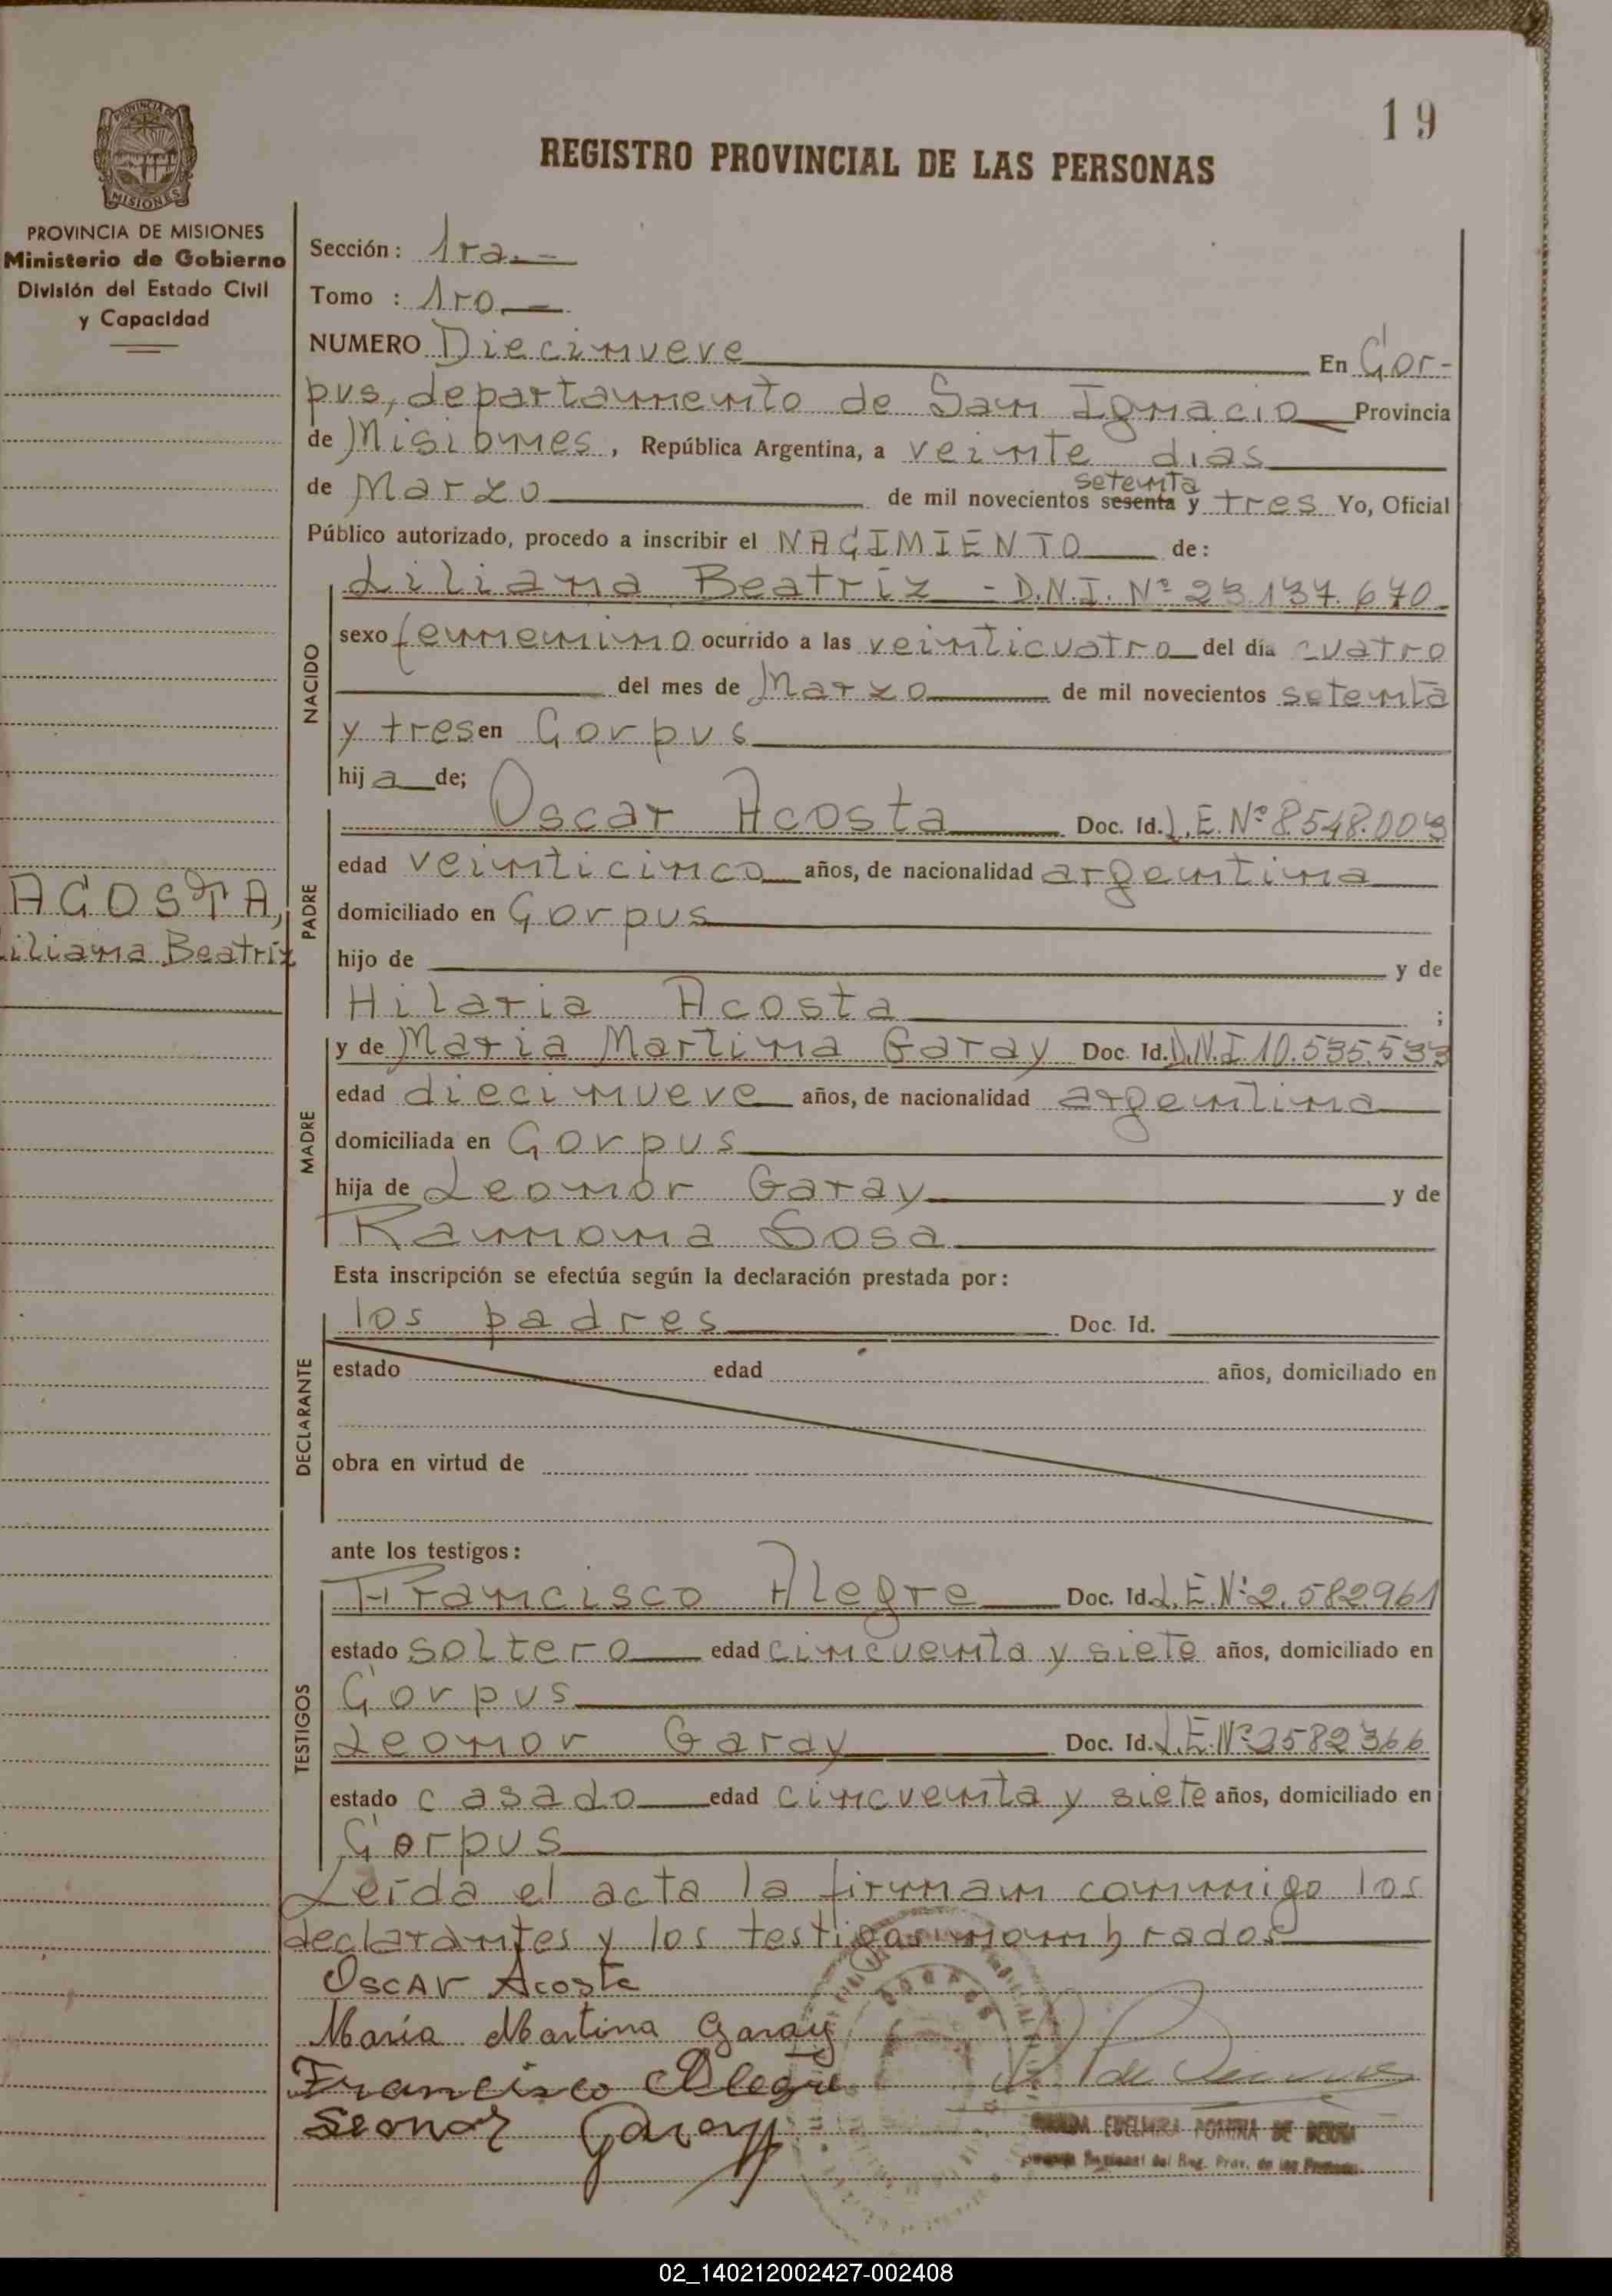 19
REGISTRO PROVINCIAL DE LAS PERSONAS
PROVINCIA DE MISIONES
PROVINCIA DE MISIONES
Ministerio de Gobierno
División del Estado Civil
y Capacidad
Sección: 1ra.-
Tomo : 1ro.-
NUMERO Diecinueve En Cor-
pus, departamento de San Ignacio Provincia
de Misiones, República Argentina, a veinte dias
setenta
de Marzo de mil novecientos sesenta y tres Yo, Oficial
Público autorizado, procedo a inscribir el NACIMIENTO de:
Liliana Beatriz - D.N.I. Nº 23.137.670
NACIDO
sexo femenino ocurrido a las veinticuatro del día cuatro
del mes de Marzo de mil novecientos setenta
y tres en Corpus
hija de;
Oscar Acosta Doc. Id. L.E. Nº 8.548.009
PADRE
edad veinticinco años, de nacionalidad argentina
domiciliado en Corpus
ACOSTA,
Liliana Beatriz
hijo de y de
Hilaria Acosta ;
y de Maria Martina Garay Doc. Id. D.N.I 10.535.533
MADRE
edad diecinueve años, de nacionalidad argentina
domiciliada en Corpus
hija de Leonor Garay y de
Ramona Sosa
Esta inscripción se efectúa según la declaración prestada por:
los padres Doc. Id.
DECLARANTE
estado edad años, domiciliado en
obra en virtud de
ante los testigos:
Francisco Alegre Doc. Id. L.E. Nº 2.582961
TESTIGOS
estado soltero edad cincuenta y siete años, domiciliado en
Corpus
Leonor Garay Doc. Id. L.E. Nº 2582366
estado casado edad cincuenta y siete años, domiciliado en
Corpus
Leida el acta la firman conmigo los
declarantes y los testigos nombrados
Oscar Acosta
María Martina Garay
Francisco Alegre
Leonor Garay
EDELMIRA DE
del Reg. Prov. de las
02_140212002427-002408